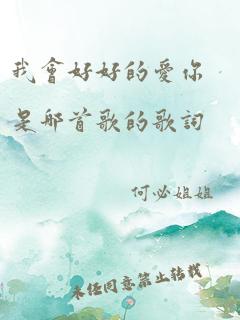 我會好好的愛你
是那首歌的歌詞
何必姐姐
未經同意禁止轉載